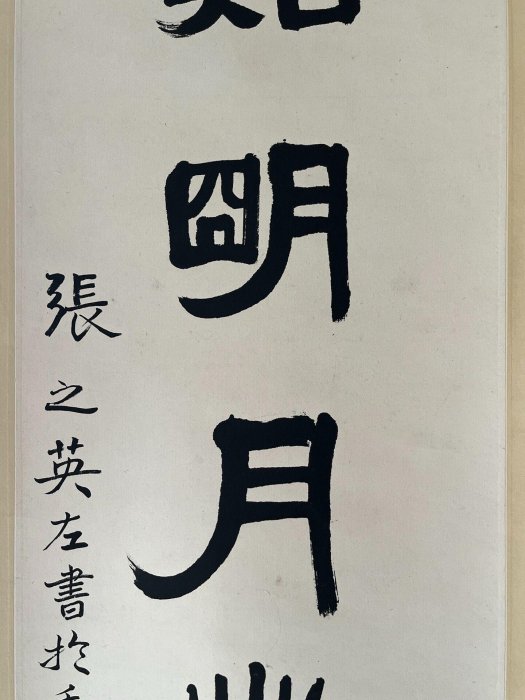 明月
張之英左書於